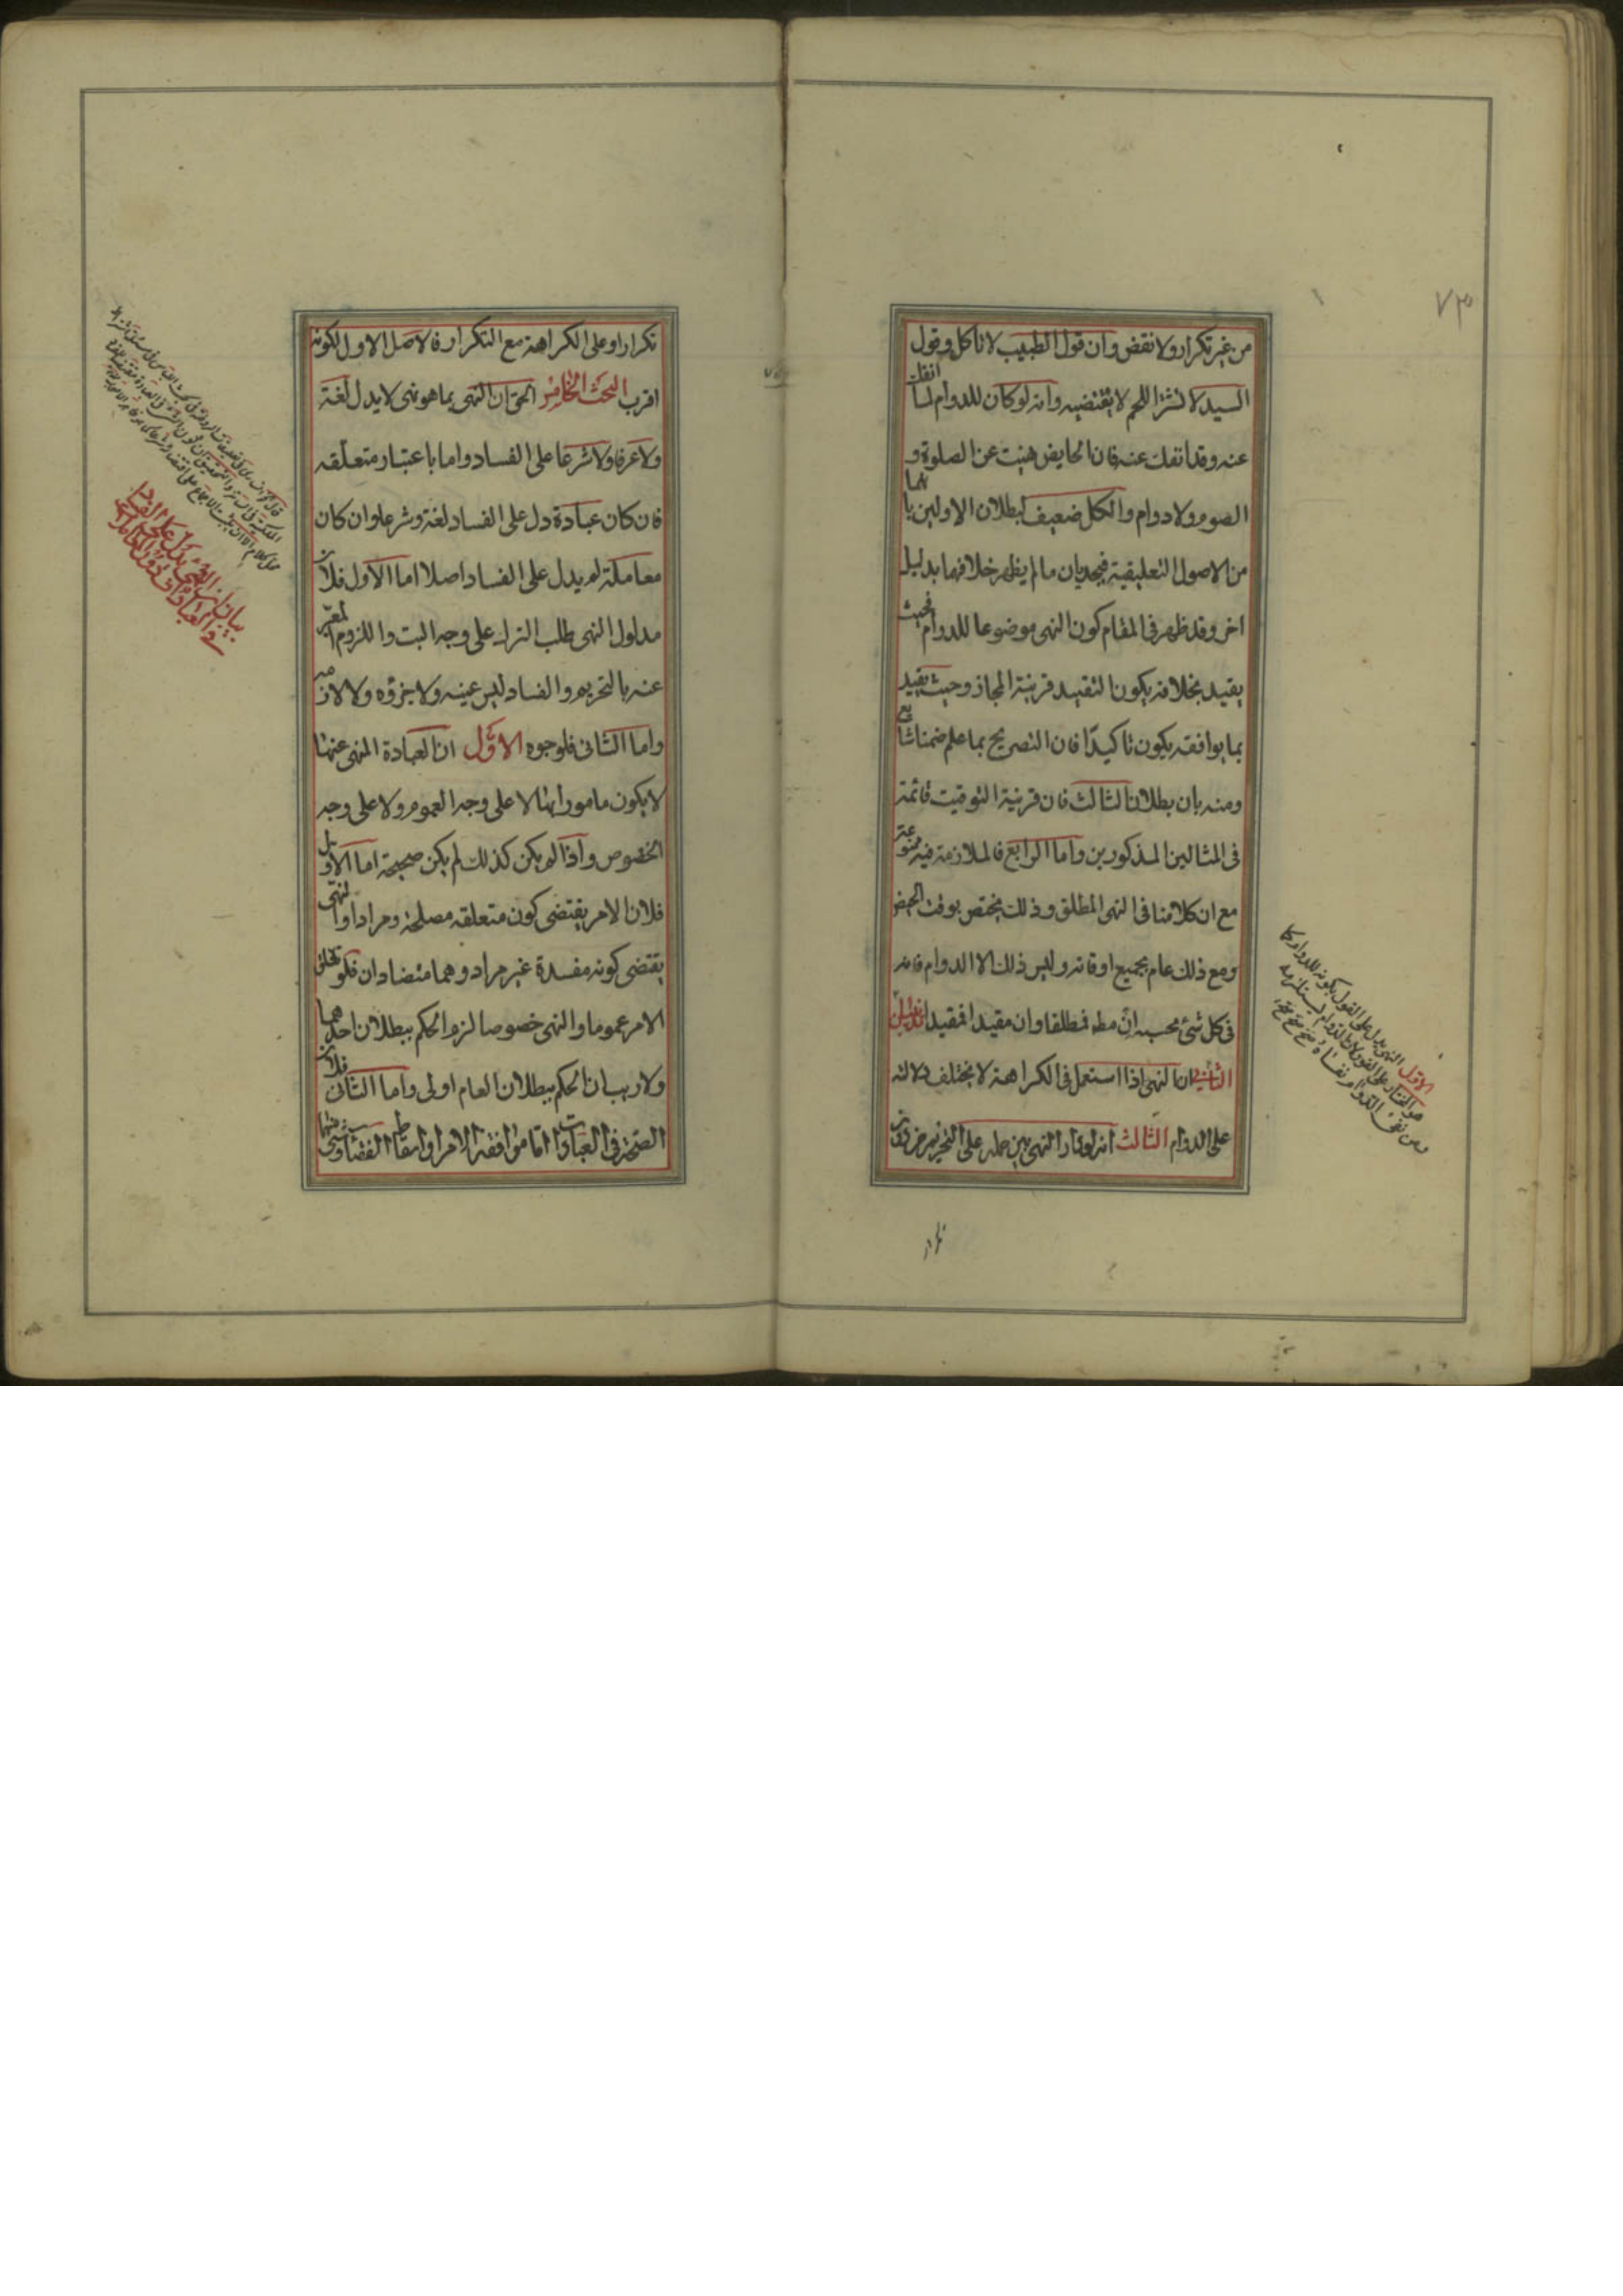 من غير تكرار ولا نقض وان قول الطبيب لا تاكل وقول
السيد لا تشتر اللحم لا يقتضيه وانه لو كان للدوام لما انفك
عنه وقد انفك عنه فان الحايض نهيت عن الصلوة و
الصوم ولا دوام والكل ضعيف لبطلان الاولين بانهما
من الاصول التعليقية فيجديان ما لم يظهر خلافهما بدليل
اخر وقد ظهر في المقام كون النهى موضوعا للدوام فحيث
يقيد بخلافه يكون التقييد قرينة المجاز وحيث يقيد
بما يوافقه يكون تاكيدا فان التصريح بما علم ضمنا شايع
ومنه بان بطلان الثالث فان قرينة التوقيت قائمة
فى المثالين المذكورين واما الرابع فالملازمة فيه ممنوعة
مع ان كلامنا فى النهى المطلق وذلك مختص بوقت الحيض
ومع ذلك عام بجميع اوقاته وليس ذلك الا الدوام فانه
فى كل شئ بحسبه ان مط فمطلقا وان مقيدا فمقيدا
الثانى ان النهى اذا استعمل فى الكراهة لا يختلف دلالته
على الدوام الثالث انه لو دار النهى بين حمله على التحريم من دون
الاول النهى يدل على القول بكونه للدوام كما
هو المختار على الفور لان الدوام يستلزمه
ومن نفى الدوام نفاه
٧٣
تكرار او على الكراهة مع التكرار فالاصل الاول لكونه
اقرب البحث الخامس الحق ان النهى بما هو نهى لا يدل لغة
ولا عرفا ولا شرعا على الفساد واما باعتبار متعلقه
فان كان عبادة دل على الفساد لغة وشرعا وان كان
معاملة لم يدل على الفساد اصلا اما الاول فلان
مدلول النهى طلب الترك على وجه البت واللزوم المعبر
عنه بالتحريم والفساد ليس عينه ولا جزؤه ولا لازمه
واما الثانى فلوجوه الاول ان العبادة المنهى عنها
لا يكون مامورا بها لا على وجه العموم ولا على وجه
الخصوص واذا لم يكن كذلك لم يكن صحيحة اما الاول
فلان الامر يقتضى كون متعلقه مصلحة ومرادا والنهى
يقتضى كونه مفسدة غير مراد وهما متضادان فلو تعلق
الامر عموما والنهى خصوصا لزم الحكم ببطلان احدهما
ولا ريب ان الحكم ببطلان العام اولى واما الثانى فلان
الصحة فى العبادات اما موافقة الامر او اسقاط القضاء
بيان ان النهى يدل على الفساد
فى العبادات دون المعاملات